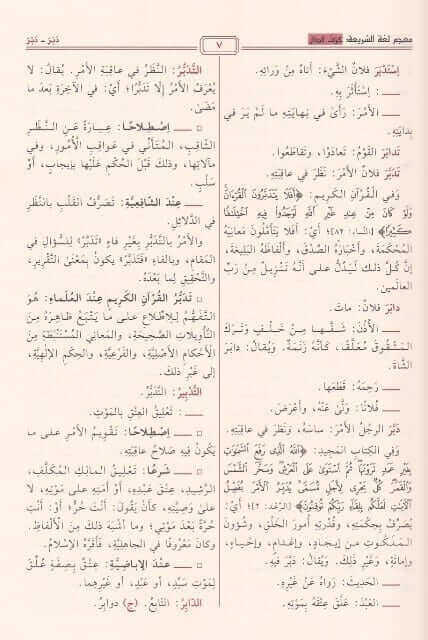 معجم لغة الشريعة، حرف الدال
٧
دَبَرَ - دَبَرَ
اِسْتَدْبَرَ فلانٌ الشَّيْءَ: أَتاهُ مِنْ وَرائِهِ.
ــــ : اِسْتَأْثَرَ بِهِ.
ــــ الأَمْرَ: رَأَى فِي نِهايَتِهِ ما لَمْ يَرَ في
بِدايَتِهِ.
تَدابَرَ القَوْمُ: تَعادَوْا، وتَقاطَعُوا.
تَدَبَّرَ فلانٌ الأَمْرَ: نَظَرَ في عاقِبَتِهِ.
وَفي القُرْآنِ الكَرِيمِ: ﴿أَفَلَا يَتَدَبَّرُونَ الْقُرْءَانَۚ
وَلَوْ كَانَ مِنْ عِندِ غَيْرِ اللَّهِ لَوَجَدُوا فِيهِ اخْتِلَافًا
كَثِيرًا﴾ [النساء: ٨٢] أيْ: أَفَلا يَتَأَمَّلُونَ مَعانِيَهُ
المُحْكَمَةَ، وَأَخْبارَهُ الصِّدْقَ، وأَلْفاظَهُ البَلِيغَةَ،
إنَّ كُلَّ ذلك لَيَدُلُّ على أنَّهُ تَنْزِيلٌ مِنْ رَبِّ
العالَمِينَ.
دابَرَ فلانٌ: ماتَ.
ــــ الأُذُنَ: شَقَّها مِنْ خَلْفٍ وتَرَكَ
المَشْقُوقَ مُعَلَّقًا، كأنَّهُ زَنَمَةٌ. وَيُقالُ: دابَرَ
الشَّاةَ.
ــــ رَحِمَهُ: قَطَعَها.
ــــ فلانًا: وَلَّىٰ عَنْهُ، وأَعْرَضَ.
دَبَّرَ الرجُلُ الأَمْرَ: ساسَهُ، ونَظَرَ في عاقِبَتِهِ.
وَفي الكِتابِ المَجِيدِ: ﴿اللَّهُ الَّذِي رَفَعَ السَّمَٰوَٰتِ
بِغَيْرِ عَمَدٍ تَرَوْنَهَاۖ ثُمَّ اسْتَوَىٰ عَلَى الْعَرْشِۖ وَسَخَّرَ الشَّمْسَ
وَالْقَمَرَۖ كُلٌّ يَجْرِي لِأَجَلٍ مُّسَمًّىۚ يُدَبِّرُ الْأَمْرَ يُفَصِّلُ
الْآيَٰتِ لَعَلَّكُم بِلِقَاءِ رَبِّكُمْ تُوقِنُونَ﴾ [الرّعْد: ٢] أيْ:
يُصَرِّفُ بِحِكْمَتِهِ، وقُدْرَتِهِ أُمورَ الخَلْقِ، وشُؤونَ
المَلَكُوتِ مِنْ إيجادٍ، وإعْدامٍ، وإحْياءٍ،
وإماتَةٍ، وغَيْرِ ذلكَ. وَيُقالُ: دَبَّرَ فيهِ.
ــــ الحَدِيثَ: رَواهُ عَنْ غَيْرِهِ.
ــــ العَبْدَ: عَلَّقَ عِتْقَهُ بِمَوْتِهِ.
التَّدَبُّرُ: النَّظَرُ في عاقِبَةِ الأَمْرِ. يُقالُ: لا
يُعْرَفُ الأَمْرُ إلَّا تَدَبُّرًا؛ أيْ: في الآخِرَةِ بَعْدَ ما
مَضَىٰ.
▫ ــــ اِصْطِلاحًا: عِبارَةٌ عَنِ النَّظَرِ
الثَّاقِبِ، المُتَأَنِّي في عَواقِبِ الأُمورِ، وفي
مَآلاتِها، وذلك قَبْلَ الحُكْمِ عَلَيْها بِإيجابٍ، أَوْ
سَلْبٍ.
▫ ــــ عِنْدَ الشَّافِعِيَّةِ: تَصَرُّفُ القَلْبِ بالنَّظَرِ
في الدَّلائِلِ.
والأَمْرُ بالتَّدَبُّرِ بِغَيْرِ فاءٍ «تَدَبَّرْ» لِلسُّؤالِ في
المَقامِ، وبالفاءِ «فَتَدَبَّرْ» يكونُ بِمَعْنَىٰ التَّقْرِيرِ،
والتَّحْقِيقِ لِما بَعْدَهُ.
▫ تَدَبُّرُ القُرْآنِ الكَرِيمِ عِنْدَ العُلَماءِ: هُوَ
التَّفَهُّمُ لِلاِطِّلاعِ على ما يَتْبَعُ ظاهِرَهُ مِنَ
التَّأْوِيلاتِ الصَّحِيحَةِ، والمَعانِي المُسْتَنْبَطَةِ مِنَ
الأَحْكامِ الأَصْلِيَّةِ، والفَرْعِيَّةِ، والحِكَمِ الإلَهِيَّةِ،
إلى غَيْرِ ذلكَ.
التَّدْبِيرُ: التَّدَبُّرُ.
ــــ : تَعْلِيقُ العِتْقِ بِالمَوْتِ.
▫ ــــ اِصْطِلاحًا: تَقْوِيمُ الأَمْرِ على ما
يَكُونُ فِيهِ صَلاحُ عاقِبَتِهِ.
▫ ــــ شَرعًا: تَعْلِيقُ المالِكِ المُكَلَّفِ،
الرَّشِيدِ، عِتْقَ عَبْدِهِ، أَوْ أَمَتِهِ على مَوْتِهِ، لا
علىٰ وَصِيَّتِهِ، كأنْ يَقُولَ: أنْتَ حُرٌّ؛ أَوْ: أَنْتِ
حُرَّةٌ بَعْدَ مَوْتِي؛ وما أَشْبَهَ ذلك مِنَ الأَلْفاظِ.
وكانَ مَعْرُوفًا في الجاهِلِيَّةِ، فَأَقَرَّهُ الإسْلامُ.
▫ ــــ عِنْدَ الإباضِيَّةِ: عِتْقٌ بِصِفَةٍ عُلِّقَ
لِمَوْتِ سَيِّدٍ، أَوْ عَبْدٍ، أَوْ غَيْرِهِما.
الدَّابِرُ: التَّابِعُ. (ج) دوابِرُ.